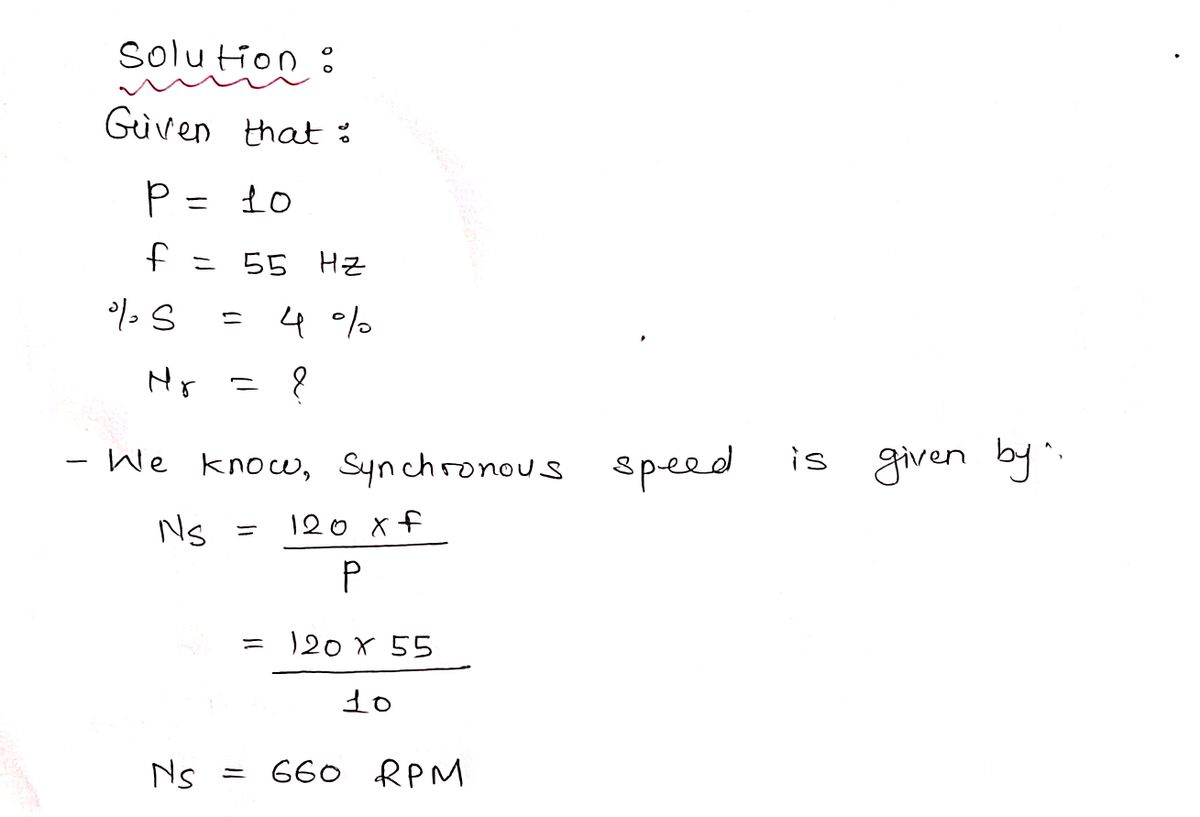 Solution :
Given that :
P = 10
f = 55 Hz
% S = 4 %
Nr = ?
- We know, Synchronous speed is given by :
Ns = 120 x f
P
= 120 x 55
10
Ns = 660 RPM